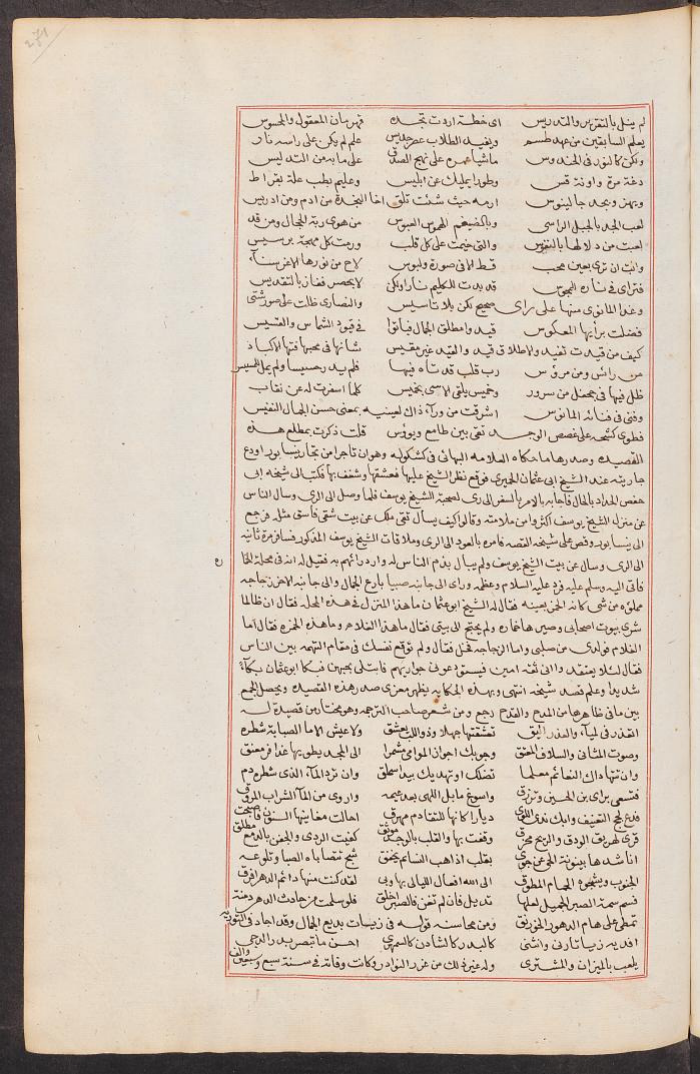 271
لم ينل بالتقريس والتدريس اى خطة اردت تجده قهرمان المعقول والمحسوس
يعلم السابقين من عهد طسم ويفيد الطلاب عصر جديس علم لم يكن على راسه نار
ولكن كالنور فى الحندوس ماشيا عمره على نهج الصدق على مابه من التدليس
دغة مرة واونة قس وطورا يمليك عن ابليس وعليم بطب علة بقراط
وبهن ويجد جالينوس ارمه حيث شئت تلق اخا النجدة من ادم ومن ادريس
لعب الجد بالجبل الراسى وبالضيغم الهموس العبوس من هوى ربة الجمال ومن قد
لعبت من دلالها بالنفوس والتى خيمت على كل قلب ورمت كل مهجة برسيس
وابت ان ترى بعين محب قط الا فى صورة ولبوس لاح من نورها الاغر سناء
فتراى فى ناره المجوس قد بدت للكليم نارا ولكن لا بحصر ففاز بالتقديس
وغدا المانوى منها على راى صحيح لكن بلا تاسيس والنصارى ظلت على صور شتى
فضلت برأيها المعكوس قيد وامطلق الجمال فباتوا فى قيود الشماس والقسيس
كيف من قيدت تفيد والاطلاق قيد والقيد غير مقيس شانها فى محبها فتها الاكباد
من رائس ومن مرؤس رب قلب قد تاه فيها فلم يدر حسيسا ولم يمل لحسيس
ظل فيها فى جحفل من سرور وخميس يلقى الاسى بخميس كلما اسفرت له عن نقاب
وفنى فى فنائه المانوس اشرقت من وراء ذاك لعينيه بمعنى حسن الجمال النفيس
فطوى كشحه على غصص الوجد تفى بين طامع ويؤس قلت ذكرت بمطلع هذه
القصيده وصدرها ما حكاه العلامه البهائى فى كشكوله وهو ان تاجرا من تجار نيسابور اودع
جاريته عند الشيخ ابى عثمان الحيرى فوقع نظر الشيخ عليها فعشقها وشغف بها فكتب الى شيخه ابى
حفص الحداد بالحال فاجابه بالامر بالسفر الى رى لصحبة الشيخ يوسف فلما وصل الى الرى وسال الناس
عن منزل الشيخ يوسف اكثروا من ملامته وقالوا كيف يسال تقى مثلك عن بيت شقى فاسق مثله فرجع
الى نيسابور وقص على شيخه القصه فامره بالعود الى الرى وملاقات الشيخ يوسف المذكور فسافر مرة ثانيه
الى الرى وسال عن بيت الشيخ يوسف ولم يبال بذم الناس له وازدرائهم به فقيل له انه فى محلة الخا
فاتى اليه وسلم عليه فرد عليه السلام وعظمه وراى الى جانبه صبيا بارع الجمال والى جانبه الاخر زجاجه
مملوه من شى كانه الخمر بعينه فقال له الشيخ ابو عثمان ما هذا المنزل فى هذه المحله فقال ان ظالما
شرى بيوت اصحابى وصيرها خماره ولم يحتج الى بيتى فقال ما هذا الغلام وما هذه الخمره فقال اما
الغلام فولدى من صلبى واما الزجاجه فخل فقال ولم توقع نفسك فى مقام التهمه بين الناس
فقال لئلا يعتقدوا انى ثقه امين فيستودعونى جواريهم فابتلى بحبهن فبكا ابو عثمان بكاءً
شديدا وعلم قصد شيخه انتهى وبهذه الحكايه يظهر مغزى صدر هذه القصيده ويحصل الجمع
بين ما فى ظاهرها من المدح والقدح رجع ومن شعر صاحب الترجمه وهو مختار من قصيدة له
اتقدر فى لمياء والعذر اليق تعشقتها جهلا وذو اللب يعشق ولا عيش الا ما الصبابة شطره
وصوت المثانى والسلاف المعتق وجوبك اجواز الموامى مشمرا الى المجد يطويها عذافر معنق
وان تتهاداك التنائف معلما تضلك او تهديك بيدا سملق وان ترد الماء الذى شطره دم
فتسقى براى بن الحسين وترزق واسوغ ما بل اللهى بعد غيمه واروى من الماء الشراب المروق
فدع لجج التعنيف وابك نمدى اللوى ديارا كانها للتقادم مهرق احالت مغانيها السنون فاصبحت
قرى لهريق الودق والريح مخرق وقفت بها والقلب بالوجد موثق كفيت الردى والجفن بالدمع مطلق
اناشدها بينونة الحى عن جوى بقلب اذا هب النسايم يخفق شج تتصاباه الصبا وتلوعه
الجنوب ويشجوه الحمام المطوق الى الله افعال الليالى بها وبى لقد كنت منها دائم الدهر افرق
فسم سمة الصبر الجميل لعلها تديل فان لم تغن فالصبر اخلق فلو سلمت من حادث الدهر دمنة
تمطى على هام الدهور الخورنق ومن محاسنه قوله فى زيسات بديع الجمال وقد اجاد فى التوريه
افديه زياتا رنى وانثنى كالبدر كالشادن كالسمهرى احسن ما تبصر بدر الدجى
يلعب بالميزان والمشترى وله غير ذلك من غرر النوادر وكانت وفاته فى سنة سبع وسبعين والف